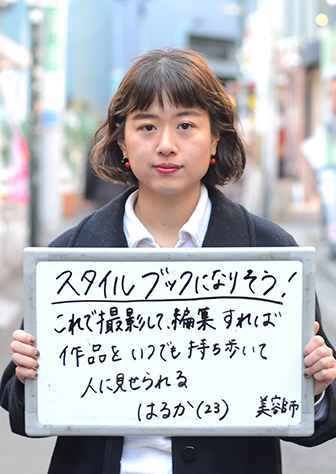 スタイルブックになりそう!
これで撮影して、編集すれば
作品をいつでも持ち歩いて
人に見せられる
はるか(23) 美容師